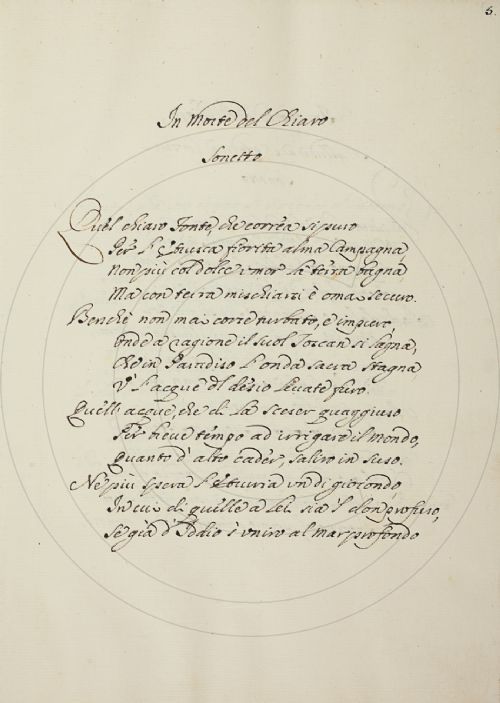 5.
In Morte del Chiaro
Sonetto
Quel chiaro Fonte, che corrèa sì puro
Per l'Etrusca fiorita alma Campagna
Non più col dolce umor la terra bagna
Ma con terra mischiarsi è omai securo.
Benchè non mai corre turbato, e impuro,
Onde a ragione il suol Toscan si lagna,
Che in Paradiso l'onda sacra stagna
V' l'acque del desio levate furo.
Quell' acque, che di là sceser quaggiuso
Per breve tempo ad irrigare il mondo,
Quanto d'alto cader, saliro in suso.
Nè più spera l'Etruria un dì giocondo,
In cui di quelle a Lei sia 'l don profuso,
Se già d'Iddio s'uniro al mar profondo